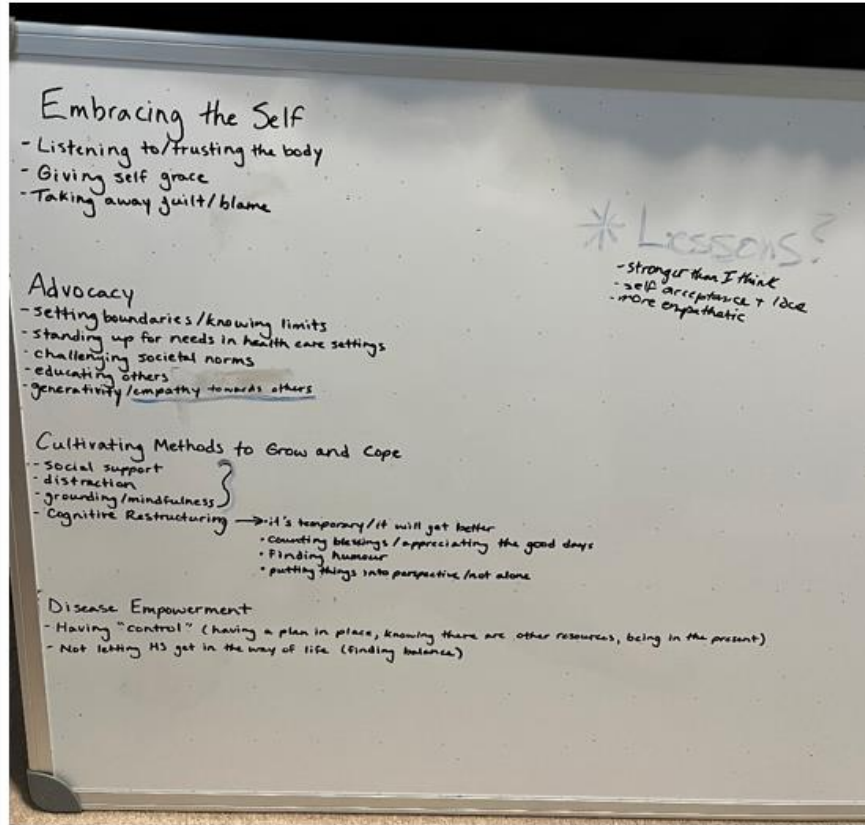 Embracing the Self
- Listening to/trusting the body
- Giving self grace
- Taking away guilt/blame
* Lessons?
- stronger than I think
- self acceptance + love
- more empathetic
Advocacy
- setting boundaries/knowing limits
- standing up for needs in health care settings
- challenging societal norms
- educating others
- generativity/empathy towards others
Cultivating Methods to Grow and Cope
- social support
- distraction
- grounding/mindfulness
- Cognitive Restructuring → • it's temporary/it will get better
• counting blessings/appreciating the good days
• Finding humour
• putting things into perspective/not alone
Disease Empowerment
- Having "control" (having a plan in place, knowing there are other resources, being in the present)
- Not letting HS get in the way of life (finding balance)